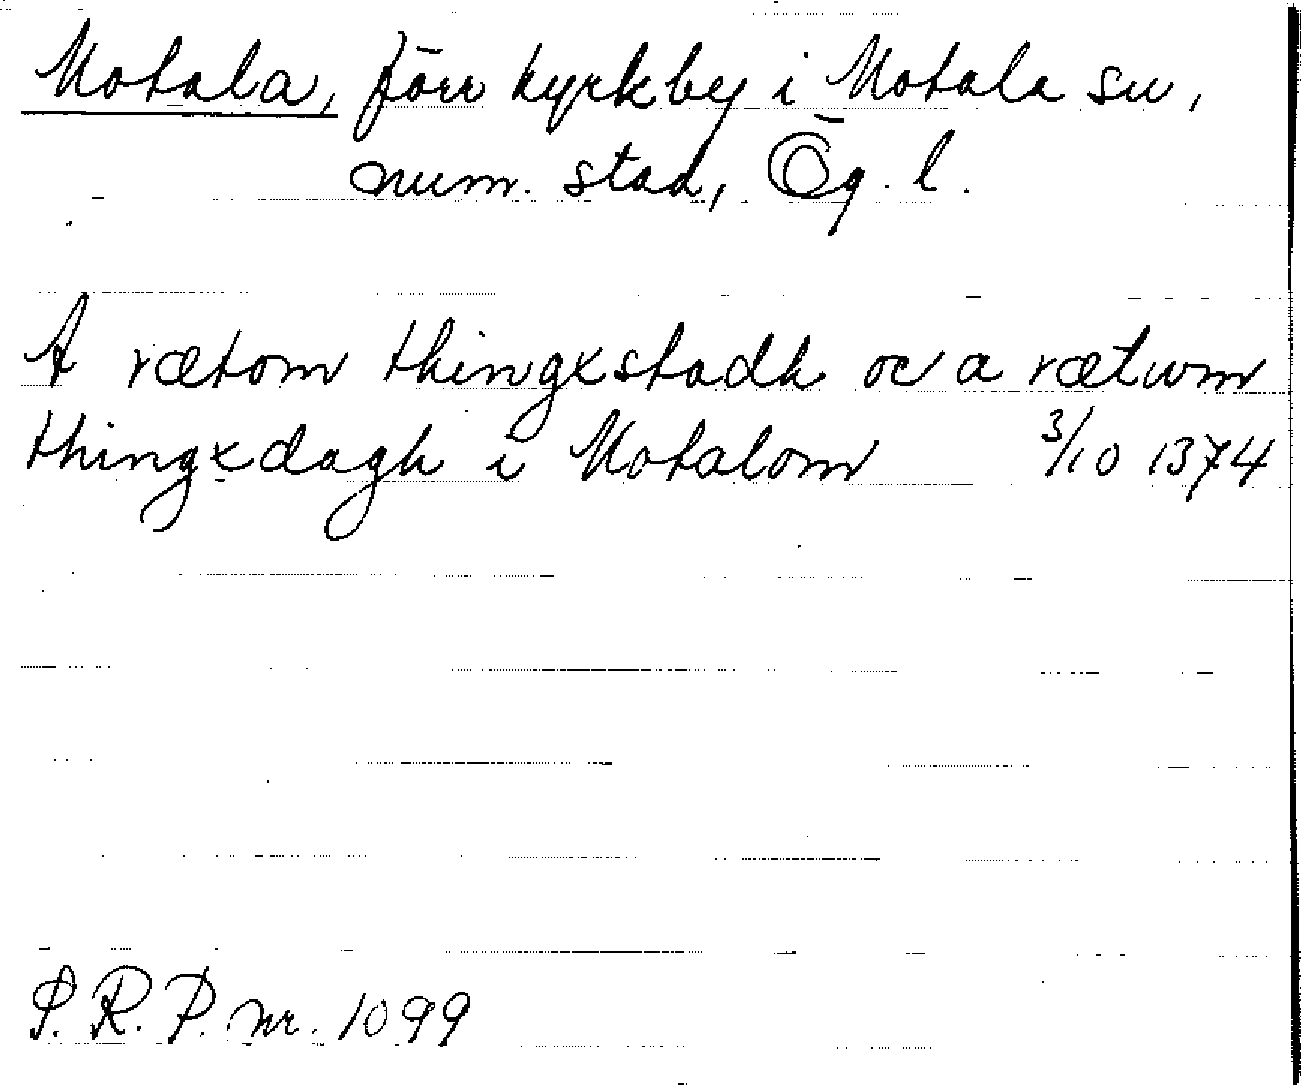 Motala, förr kyrkby i Motala sn,
num. stad, Ög. l.
A rætom thingxstadh oc a rætum
thingxdagh i Motalom 3/10 1374
S.R.P. nr. 1099